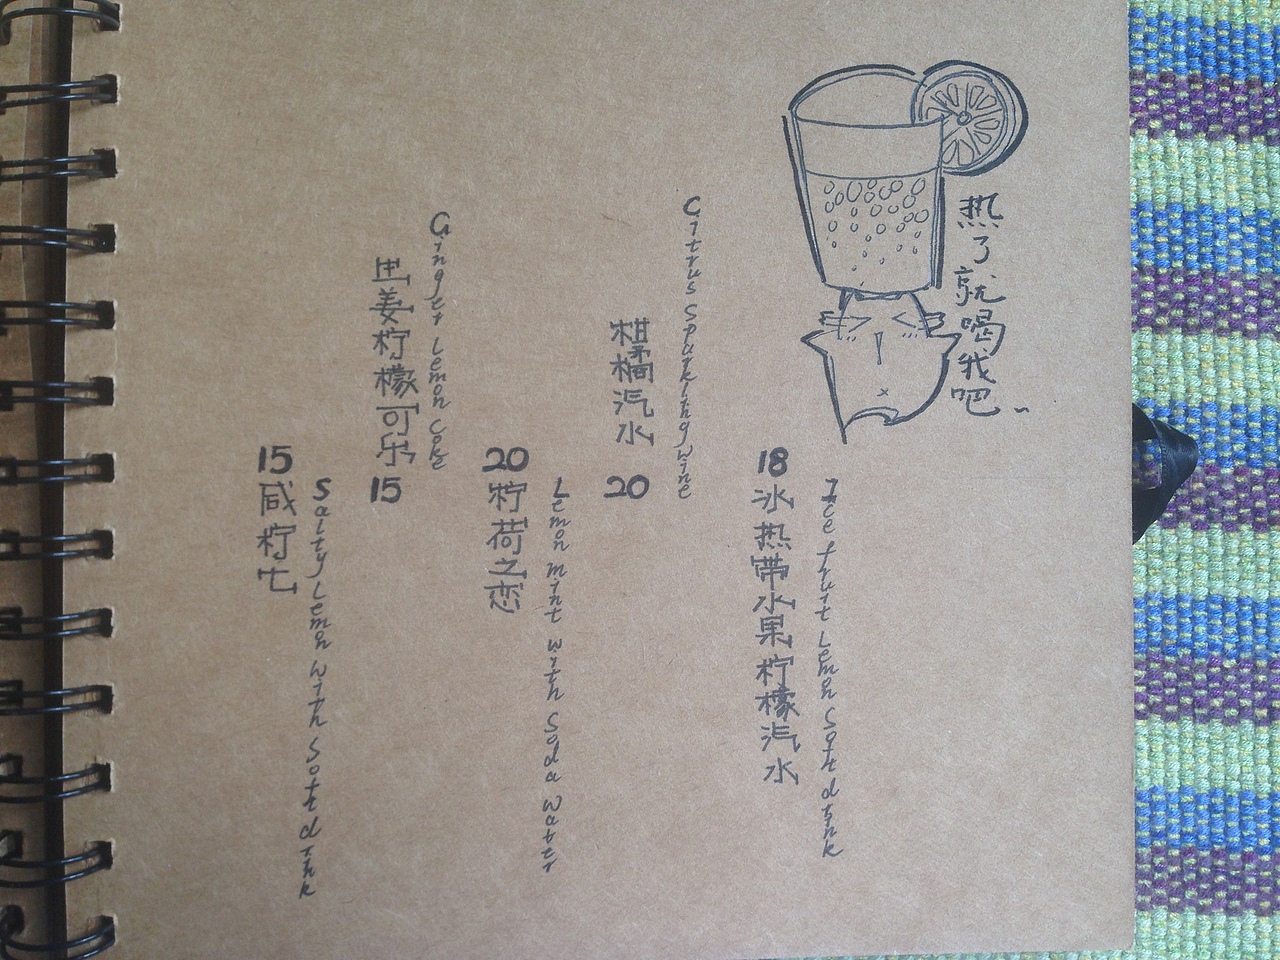 热了就喝我吧~
Ice fruit Lemon Soth drink
18 冰热带水果柠檬汽水
Citrus Sparkling wine
柑橘汽水 20
Lemon mint with Soda water
20 柠荷之恋
Ginger Lemon Coke
姜柠檬可乐 15
Salty Lemon with Soth drink
15 咸柠七